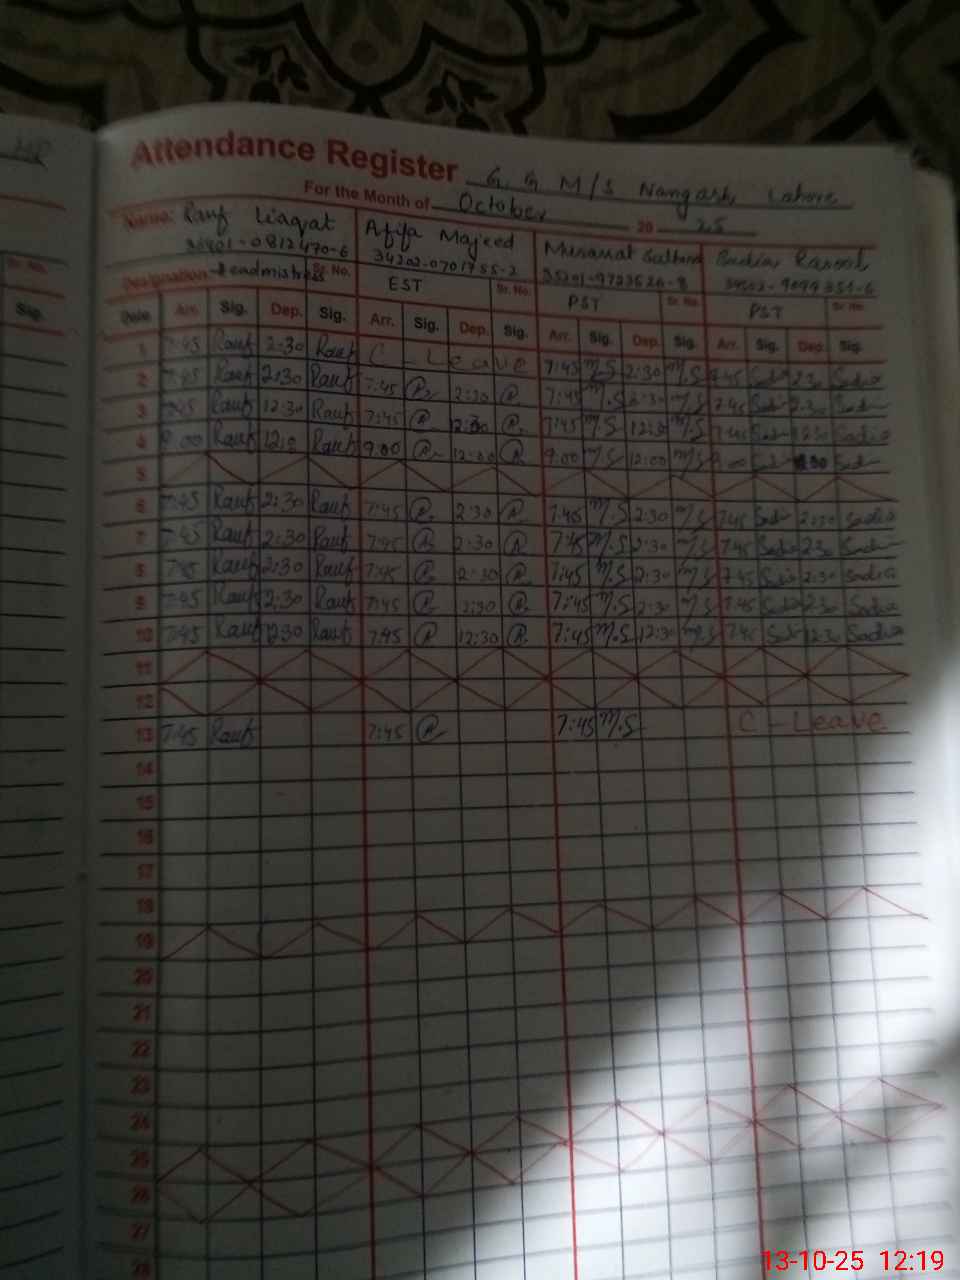 Attendance Register G. G M/S Nangash Lahore
For the Month of October 20 25
Name: Rauf Liaqat Afifa Majeed Musarrat Sultana Sadia Rasool
34202-0701755-2
Designation Headmistress Sr. No. EST Sr. No. PST Sr. No. PST Sr. No.
Date Arr. Sig. Dep. Sig. Arr. Sig. Dep. Sig. Arr. Sig. Dep. Sig. Arr. Sig. Dep. Sig.
1 7:45 Rauf 2:30 Rauf C - Leave 7:45 M.S 2:30 M.S 7:45 Sadia 2:30 Sadia
2 7:45 Rauf 2:30 Rauf 7:45 2:30 7:45 M.S 2:30 M/S 7:45 Sadia 2:30 Sadia
3 7:45 Rauf 12:30 Rauf 7:45 12:30 7:45 M.S 12:30 M.S 7:45 Sadia 12:30 Sadia
4 9:00 Rauf Rauf 9:00 12:00 9:00 M/S 12:00 M/S 9:00
5
6 7:45 Rauf 2:30 Rauf 7:45 2:30 7:45 M.S 2:30 M.S 7:45 Sadia 2:30 Sadia
7 7:45 Rauf 2:30 Rauf 7:45 2:30 7:45 M.S 2:30 M/S 7:45 Sadia 2:30 Sadia
8 7:45 Rauf 2:30 Rauf 7:45 2:30 7:45 M.S 2:30 M/S 7:45 Sadia 2:30 Sadia
9 7:45 Rauf 2:30 Rauf 7:45 2:30 7:45 M.S 2:30 M/S 7:45 Sadia 2:30 Sadia
10 7:45 Rauf 12:30 Rauf 7:45 12:30 7:45 M.S 12:30 M.S 7:45 Sadia 12:30 Sadia
11
12
13 7:45 Rauf 7:45 7:45 M.S C - Leave
14
15
16
17
18
19
20
21
22
23
24
25
26
27
28
Sr. No.
Sig.
13-10-25 12:19